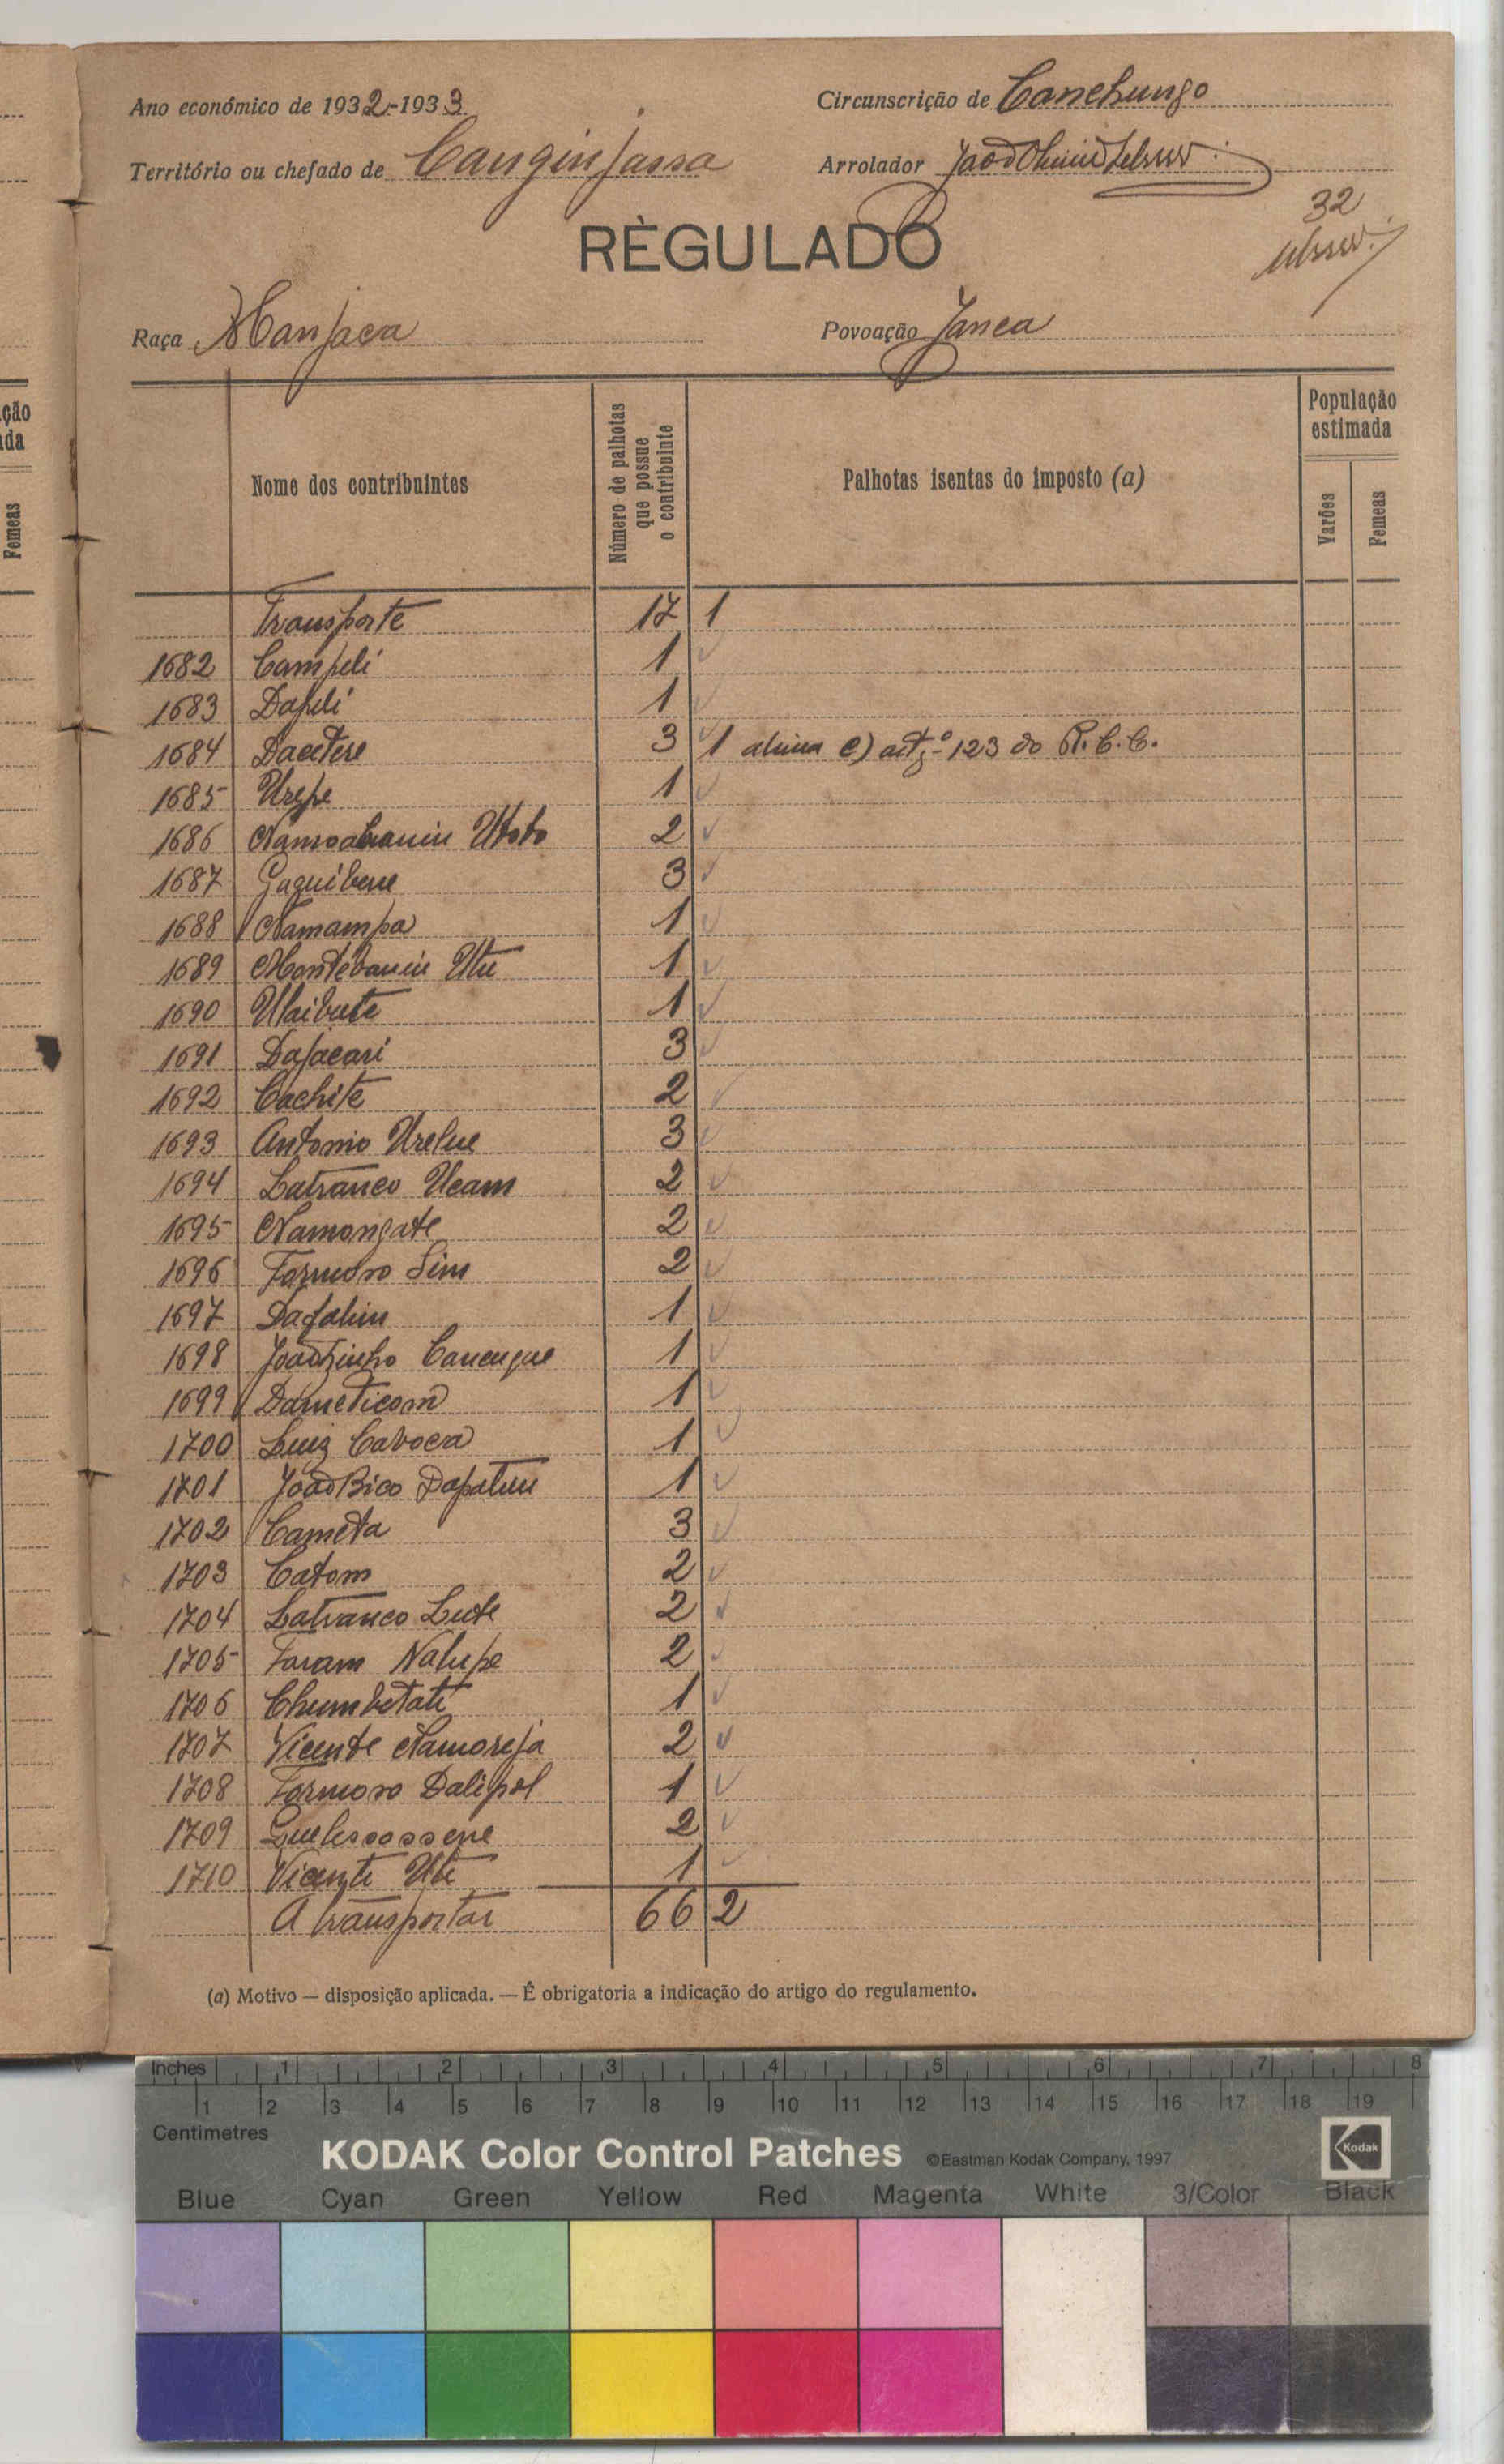 Ano económico de 1932-1933
Circunscrição de Canchungo
Território ou chefado de Canginjassa
Arrolador João
32
RÈGULADO
Raça Manjaca
Povoação Janca
ção
ada
Femeas
Nome dos contribuintes
Número de palhotas que possue o contribuinte
Palhotas isentas do imposto (a)
População estimada
Varões
Femeas
Transporte 17 1
1682 Campeli 1
1683 Dapeli 1
1684 Dacetere 3 1 alinea e) artgº 123 do R.C.C.
1685 Urepe 1
1686 Utobo 2
1687 Gaquibene 3
1688 Namampa 1
1689 1
1690 Ulaibute 1
1691 Dajacari 3
1692 Cachite 2
1693 Antonio Urelue 3
1694 Batranco Ucam 2
1695 Namongate 2
1696 Formoso Sim 2
1697 Dafalim 1
1698 Joaozinho 1
1699 Dameticom 1
1700 Luiz Cavoca 1
1701 João Bico 1
1702 Cameta 3
1703 Catom 2
1704 Batranco Lute 2
1705 Faram Nalupe 2
1706 Chumbetate 1
1707 Vicente Namoreja 2
1708 Formoso Dalipol 1
1709 2
1710 Vicente Ute 1
A transportar 66 2
(a) Motivo — disposição aplicada. — É obrigatoria a indicação do artigo do regulamento.
Inches 1 2 3 4 5 6 7 8
1 2 3 4 5 6 7 8 9 10 11 12 13 14 15 16 17 18 19
Centimetres
KODAK Color Control Patches ©Eastman Kodak Company, 1997 Kodak
Blue Cyan Green Yellow Red Magenta White 3/Color Black